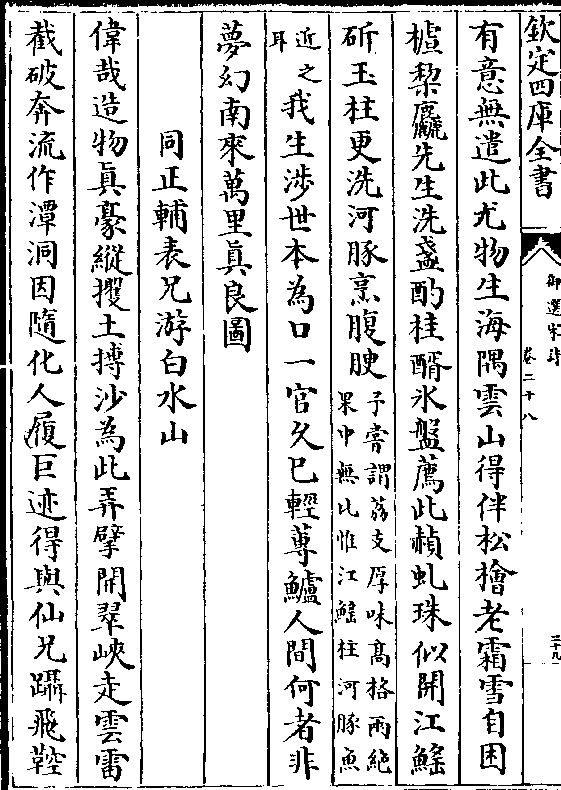 欽定四庫全書
御選宋詩
卷二十八
三十九
有意無遣此尤物生海隅雲山得伴松檜老霜雪自困
樝棃麤先生洗盞酌桂醑氷盤薦此赬虬珠似開江鰩
斫玉柱更洗河豚烹腹腴予嘗謂荔支厚味髙格兩絶
果中無比惟江鰩柱河豚魚
近之
耳
我生涉世本為口一官乆已輕蓴鱸人間何者非
夢幻南來萬里真良圖
同正輔表兄游白水山
偉哉造物真豪縱攫土摶沙為此弄擘開翠峽走雲雷
截破奔流作潭洞因隨化人履巨迹得與仙兄躡飛鞚